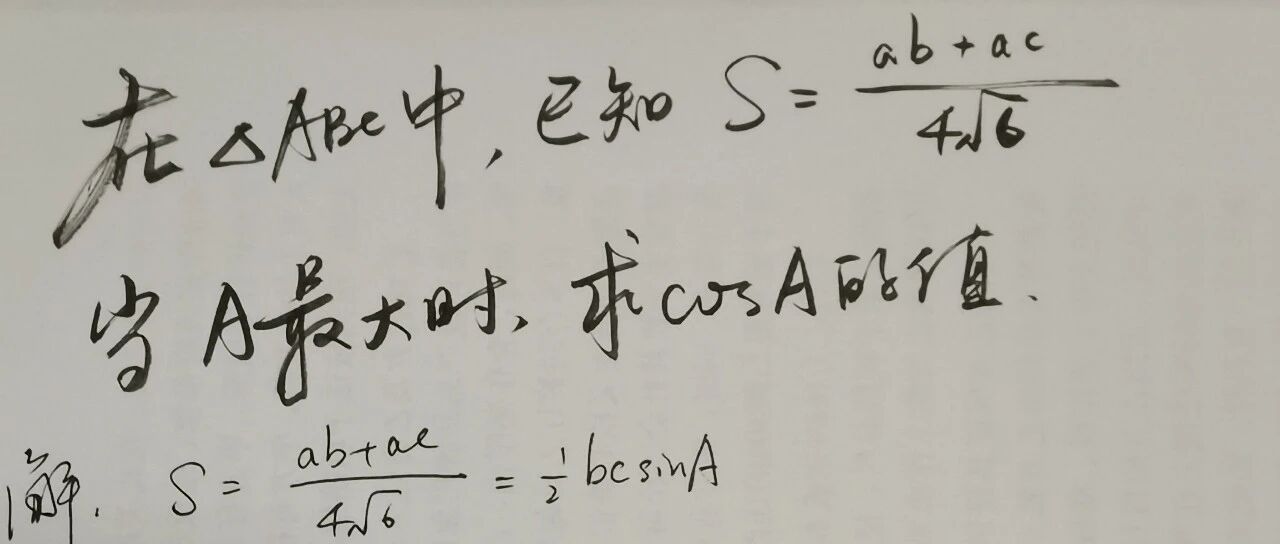 在△ABC中,已知 S = \frac{ab+ac}{4\sqrt{6}}
当A最大时,求cosA的值.
解. S = \frac{ab+ac}{4\sqrt{6}} = \frac{1}{2}bcsinA